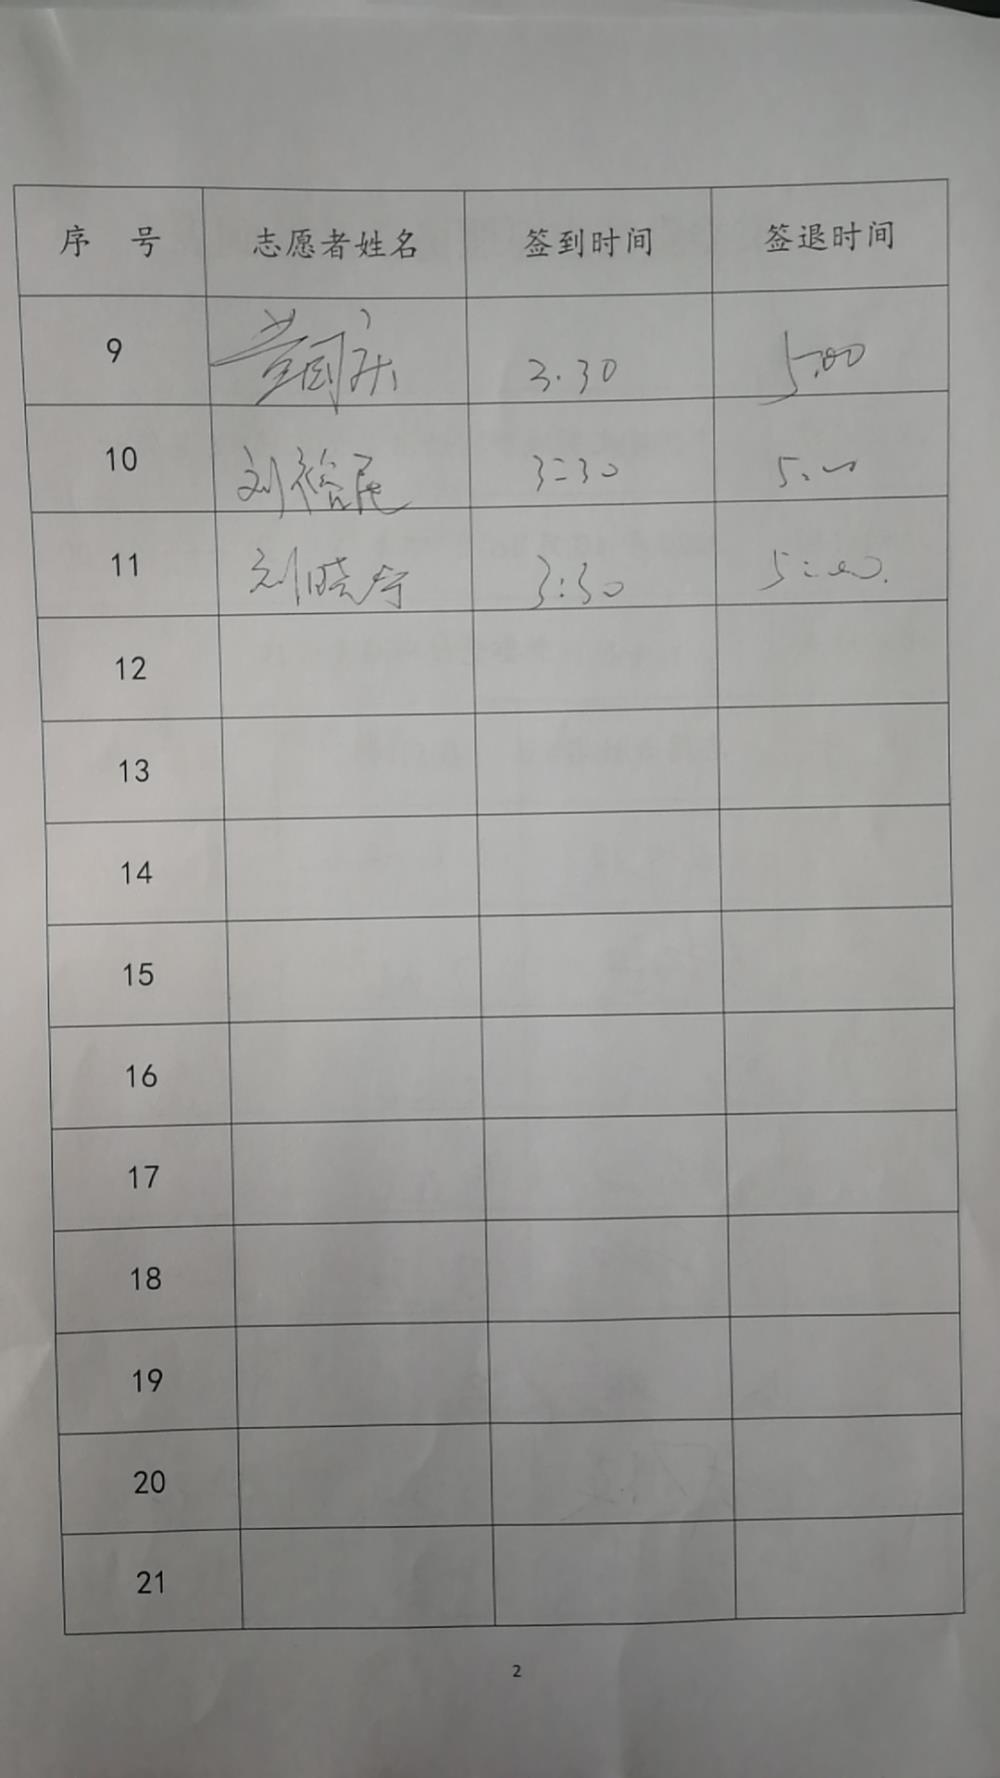 序 号 志愿者姓名 签到时间 签退时间
9 3.30 5:00
10 刘裕民 3:30 5:00
11 刘晓宁 3:30 5:00.
12
13
14
15
16
17
18
19
20
21
2